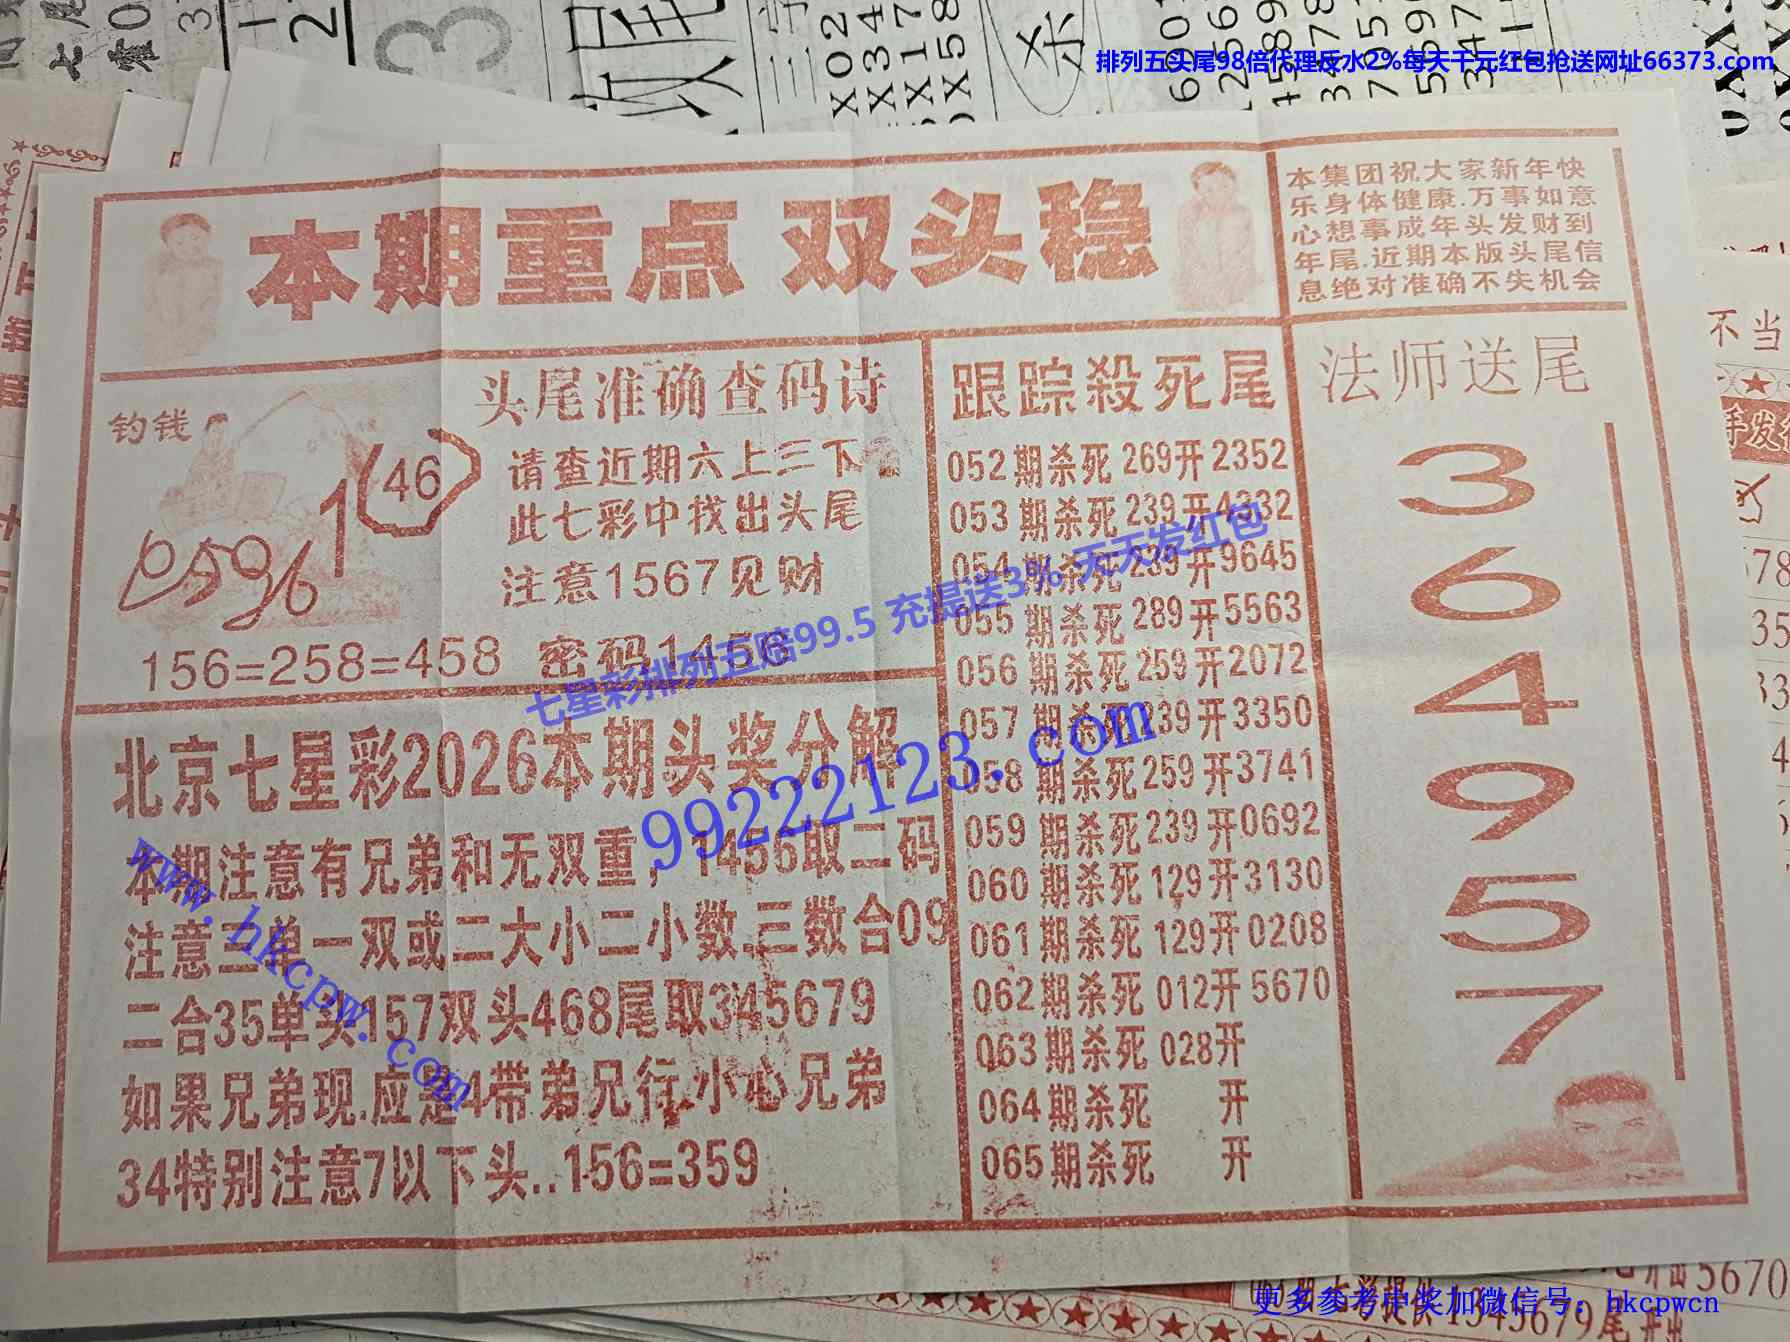 排列五头尾98倍代理反水2%每天千元红包抢送网址66373.com
本期重点 双头稳
本集团祝大家新年快
乐身体健康.万事如意
心想事成年头发财到
年尾.近期本版头尾信
息绝对准确不失机会
钓钱
46
1
0596
头尾准确查码诗
请查近期六上三下
此七彩中找出头尾
注意1567见财
156=258=458 密码1456
跟踪殺死尾
052期杀死 269开2352
053期杀死 239开4332
054期杀死 239开9645
055期杀死 289开5563
056期杀死 259开2072
057期杀死 239开3350
058期杀死 259开3741
059期杀死 239开0692
060期杀死 129开3130
061期杀死 129开0208
062期杀死 012开5670
063期杀死 028开
064期杀死 开
065期杀死 开
法师送尾
3
6
4
9
5
7
北京七星彩2026本期头奖分解
本期注意有兄弟和无双重,1456取二码
注意三单一双或二大小二小数.三数合09
二合35单头157双头468尾取345679
如果兄弟现.应是4带弟兄行.小心兄弟
34特别注意7以下头..156=359
七星彩排列五赔99.5 充提送3% 天天发红包
99222123.com
www.hkcpw.com
更多参考中奖加微信号: hkcpwcn